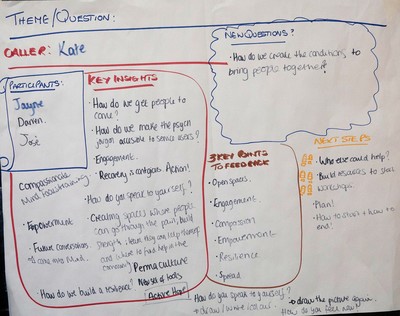 THEME/QUESTION:
CALLER: Kate
PARTICIPANTS:
Jayne
Darren.
José
Compassionate
Mind Focus training
• Empowerment
• Future conversations
come into Mind.
KEY INSIGHTS
• How do we get people to
come?
• How do we make the psych
jargon accessible to service users?
• Engagement.
• Recovery is contagious. Action!
• How do you speak to yourself?
• Creating spaces where people
can go through the pain, build
strength, learn they can help themself
and where to find help in the
community
Permaculture
• How do we build a resilience?
New set of tools
Active Hope
NEW QUESTIONS?
• How do we create the conditions to
bring people together?
3 KEY POINTS
TO FEEDBACK
• Open spaces.
• Engagement.
• Compassion
• Empowerment
• Resilience
• Spread
NEXT STEPS
• Who else could help?
• Build resources to start
workshops
• Plan!
• How to start & how to
end!
How do you speak to yourself?
draw
draw the picture again.
How do you feel now?